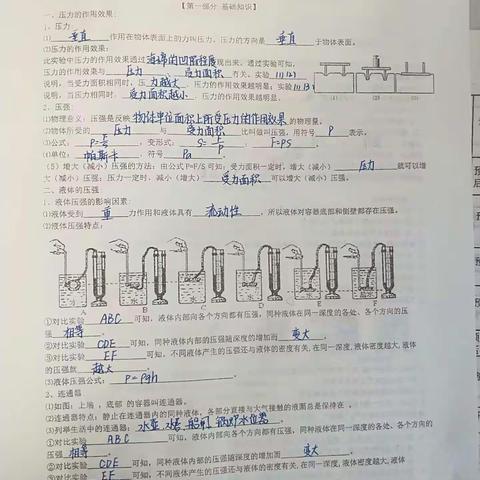 【第一部分 基础知识】
一、压力的作用效果:
1、压力:
(1) 垂直 作用在物体表面上的力叫压力。压力的方向是 垂直 于物体表面。
(2)压力的作用效果:
此实验中压力的作用效果通过海绵的凹陷程度现出来。通过实验可知,
压力的作用效果与 压力 、 受力面积 有关。实验 (1)(2)
说明,当受力面积相同时, 压力越大 ,压力的作用效果越明显;实验 (1)(3)
说明,当压力相同时, 受力面积越小 ,压力的作用效果越明显。
2、压强:
(1)物理意义:压强是反映 物体单位面积上所受压力的作用效果 的物理量。
(2)物体所受的 压力 与 受力面积 比叫做压强。用符号 P 表示。
(3)公式: P=F/S ,变形式: S=F/P 、 F=PS 。
(4)单位: 帕斯卡 ,符号 Pa
(5)增大(减小)压强的方法:由公式P=F/S可知:受力面积一定时,增大(减小) 压力 就可以增
大(减小)压强;压力一定时,减小(增大) 受力面积 可以增大(减小)压强。
二、液体的压强
1、液体压强的影响因素:
(1)液体受到 重 力作用和液体具有 流动性 ,所以液体对容器底部和侧壁都存在压强。
(2)液体压强特点:
A B C D E F
①对比实验 ABC 可知,液体内部向各个方向都有压强,同种液体在同一深度的各处、各个方向的压
强 相等 。
②对比实验 CDE 可知,同种液体内部的压强随深度的增加而 变大 。
③对比实验 EF 可知,不同液体产生的压强还与液体的密度有关,在同一深度,液体密度越大,液体
的压强就 越大 。
(3)液体压强公式: P=ρgh
2、连通器
(1)如图:上端 、底部 的容器叫连通器。
(2)连通器特点:静止在连通器内的同种液体,各部分直接与大气接触的液面总是保持在 。
(3)列举生活中的连通器: 水壶 水塔 船闸 锅炉水位器
①对比实验 ABC 可知,液体内部向各个方向都有压强,同种液体在同一深度的各处、各个方向的
压强 相等 。
②对比实验 CDE 可知,同种液体内部的压强随深度的增加而 变大 。
③对比实验 EF 可知,不同液体产生的压强还与液体的密度有关,在同一深度,液体密度越大,液体